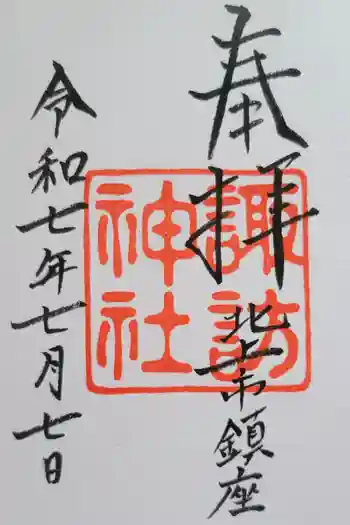 奉拝
北上市鎮座
諏訪
神社
令和七年七月七日